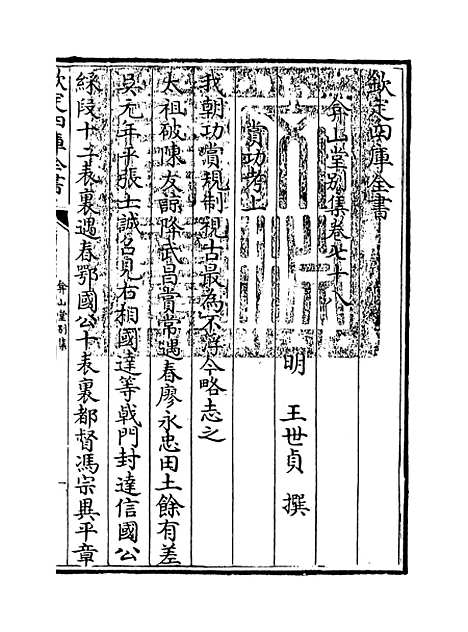 欽定四庫全書
弇山堂别集卷七十八
明 王世貞 撰
賞功考上
我朝功賞規制視古最為不等今略志之
太祖破陳友諒降武昌賞常遇春廖永忠田土餘有差
吳元年平張士誠名見右相國達等戟門封達信國公
綵段十二表裏遇春鄂國公十表裏都督馮宗異平章
欽定四庫全書
弇山堂别集
一